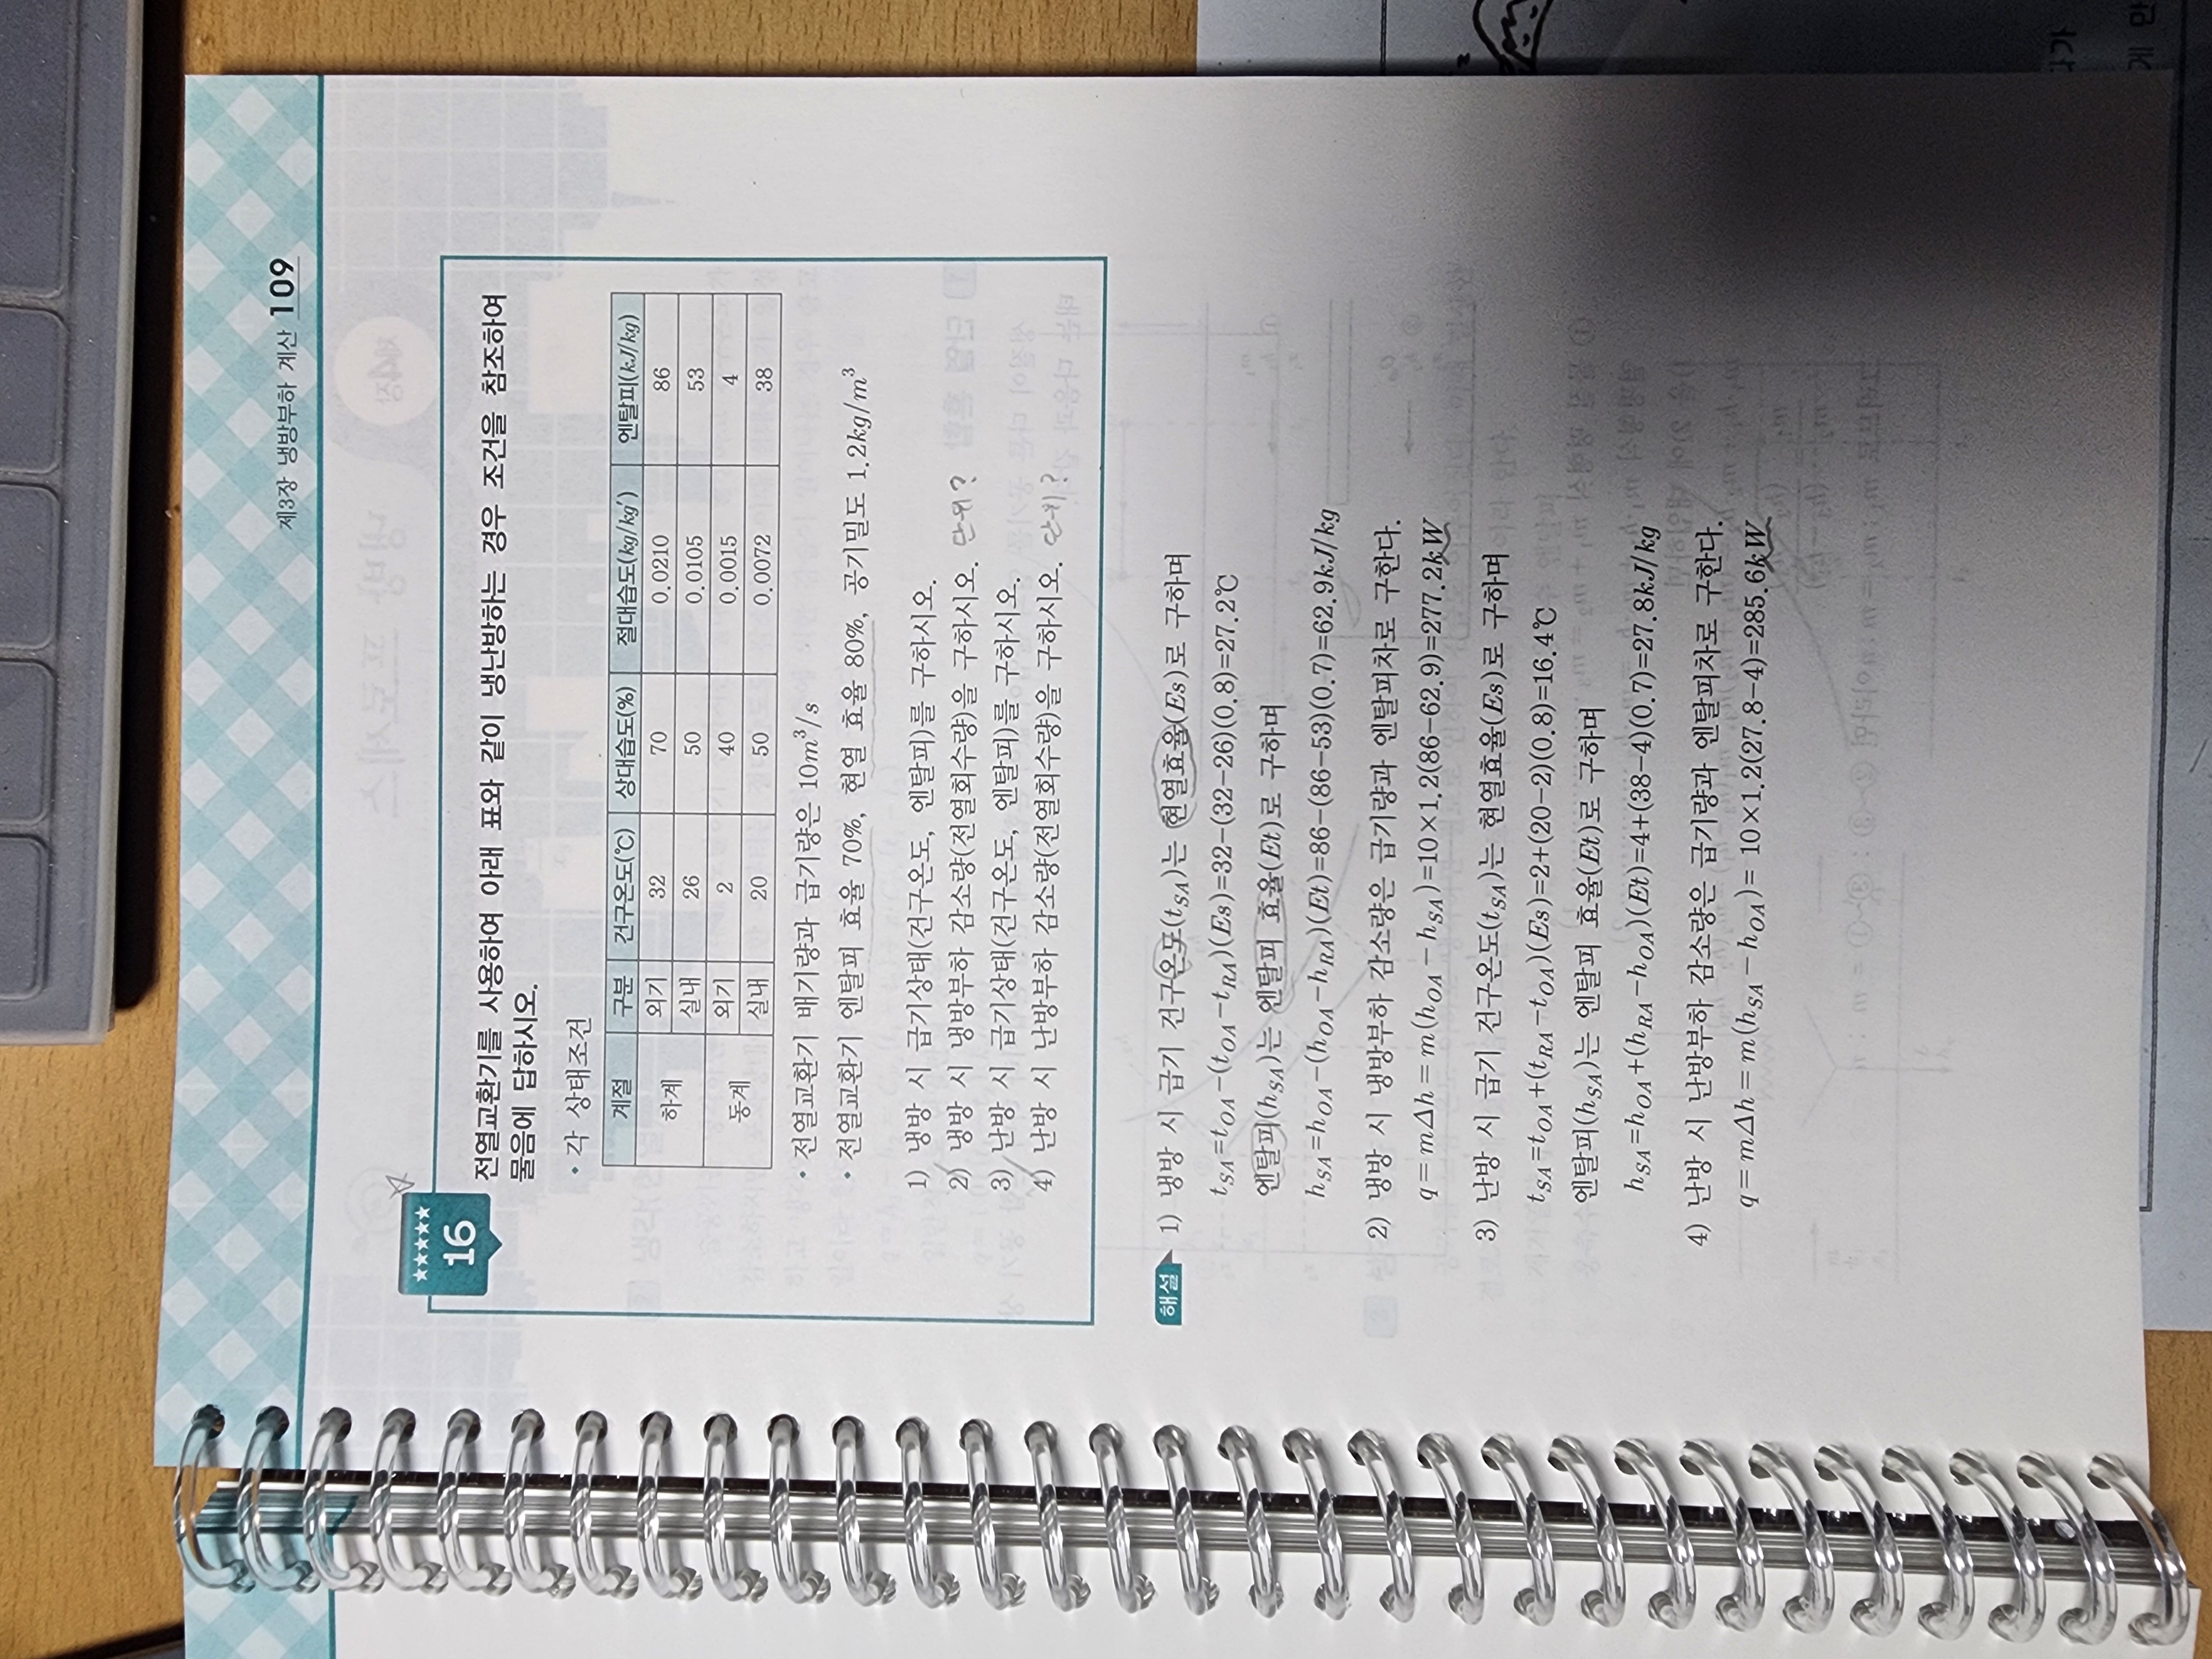 제3장 냉방부하 계산 109
★★★★★
16
전열교환기를 사용하여 아래 표와 같이 냉난방하는 경우 조건을 참조하여
물음에 답하시오.
• 각 상태조건
계절 구분 건구온도(℃) 상대습도(%) 절대습도(kg/kg′) 엔탈피(kJ/kg)
하계 외기 32 70 0.0210 86
실내 26 50 0.0105 53
동계 외기 2 40 0.0015 4
실내 20 50 0.0072 38
• 전열교환기 배기량과 급기량은 10m³/s
• 전열교환기 엔탈피 효율 70%, 현열 효율 80%, 공기밀도 1.2kg/m³
1) 냉방 시 급기상태(건구온도, 엔탈피)를 구하시오.
2) 냉방 시 냉방부하 감소량(전열회수량)을 구하시오. 단위?
3) 난방 시 급기상태(건구온도, 엔탈피)를 구하시오.
4) 난방 시 난방부하 감소량(전열회수량)을 구하시오. 단위?
해설
1) 냉방 시 급기 건구온도(t_SA)는 현열효율(Es)로 구하며
t_SA=t_OA−(t_OA−t_RA)(Es)=32−(32−26)(0.8)=27.2℃
엔탈피(h_SA)는 엔탈피 효율(Et)로 구하며
h_SA=h_OA−(h_OA−h_RA)(Et)=86−(86−53)(0.7)=62.9kJ/kg
2) 냉방 시 냉방부하 감소량은 급기량과 엔탈피차로 구한다.
q=mΔh=m(h_OA−h_SA)=10×1.2(86−62.9)=277.2kW
3) 난방 시 급기 건구온도(t_SA)는 현열효율(Es)로 구하며
t_SA=t_OA+(t_RA−t_OA)(Es)=2+(20−2)(0.8)=16.4℃
엔탈피(h_SA)는 엔탈피 효율(Et)로 구하며
h_SA=h_OA+(h_RA−h_OA)(Et)=4+(38−4)(0.7)=27.8kJ/kg
4) 난방 시 난방부하 감소량은 급기량과 엔탈피차로 구한다.
q=mΔh=m(h_SA−h_OA)= 10×1.2(27.8−4)=285.6kW